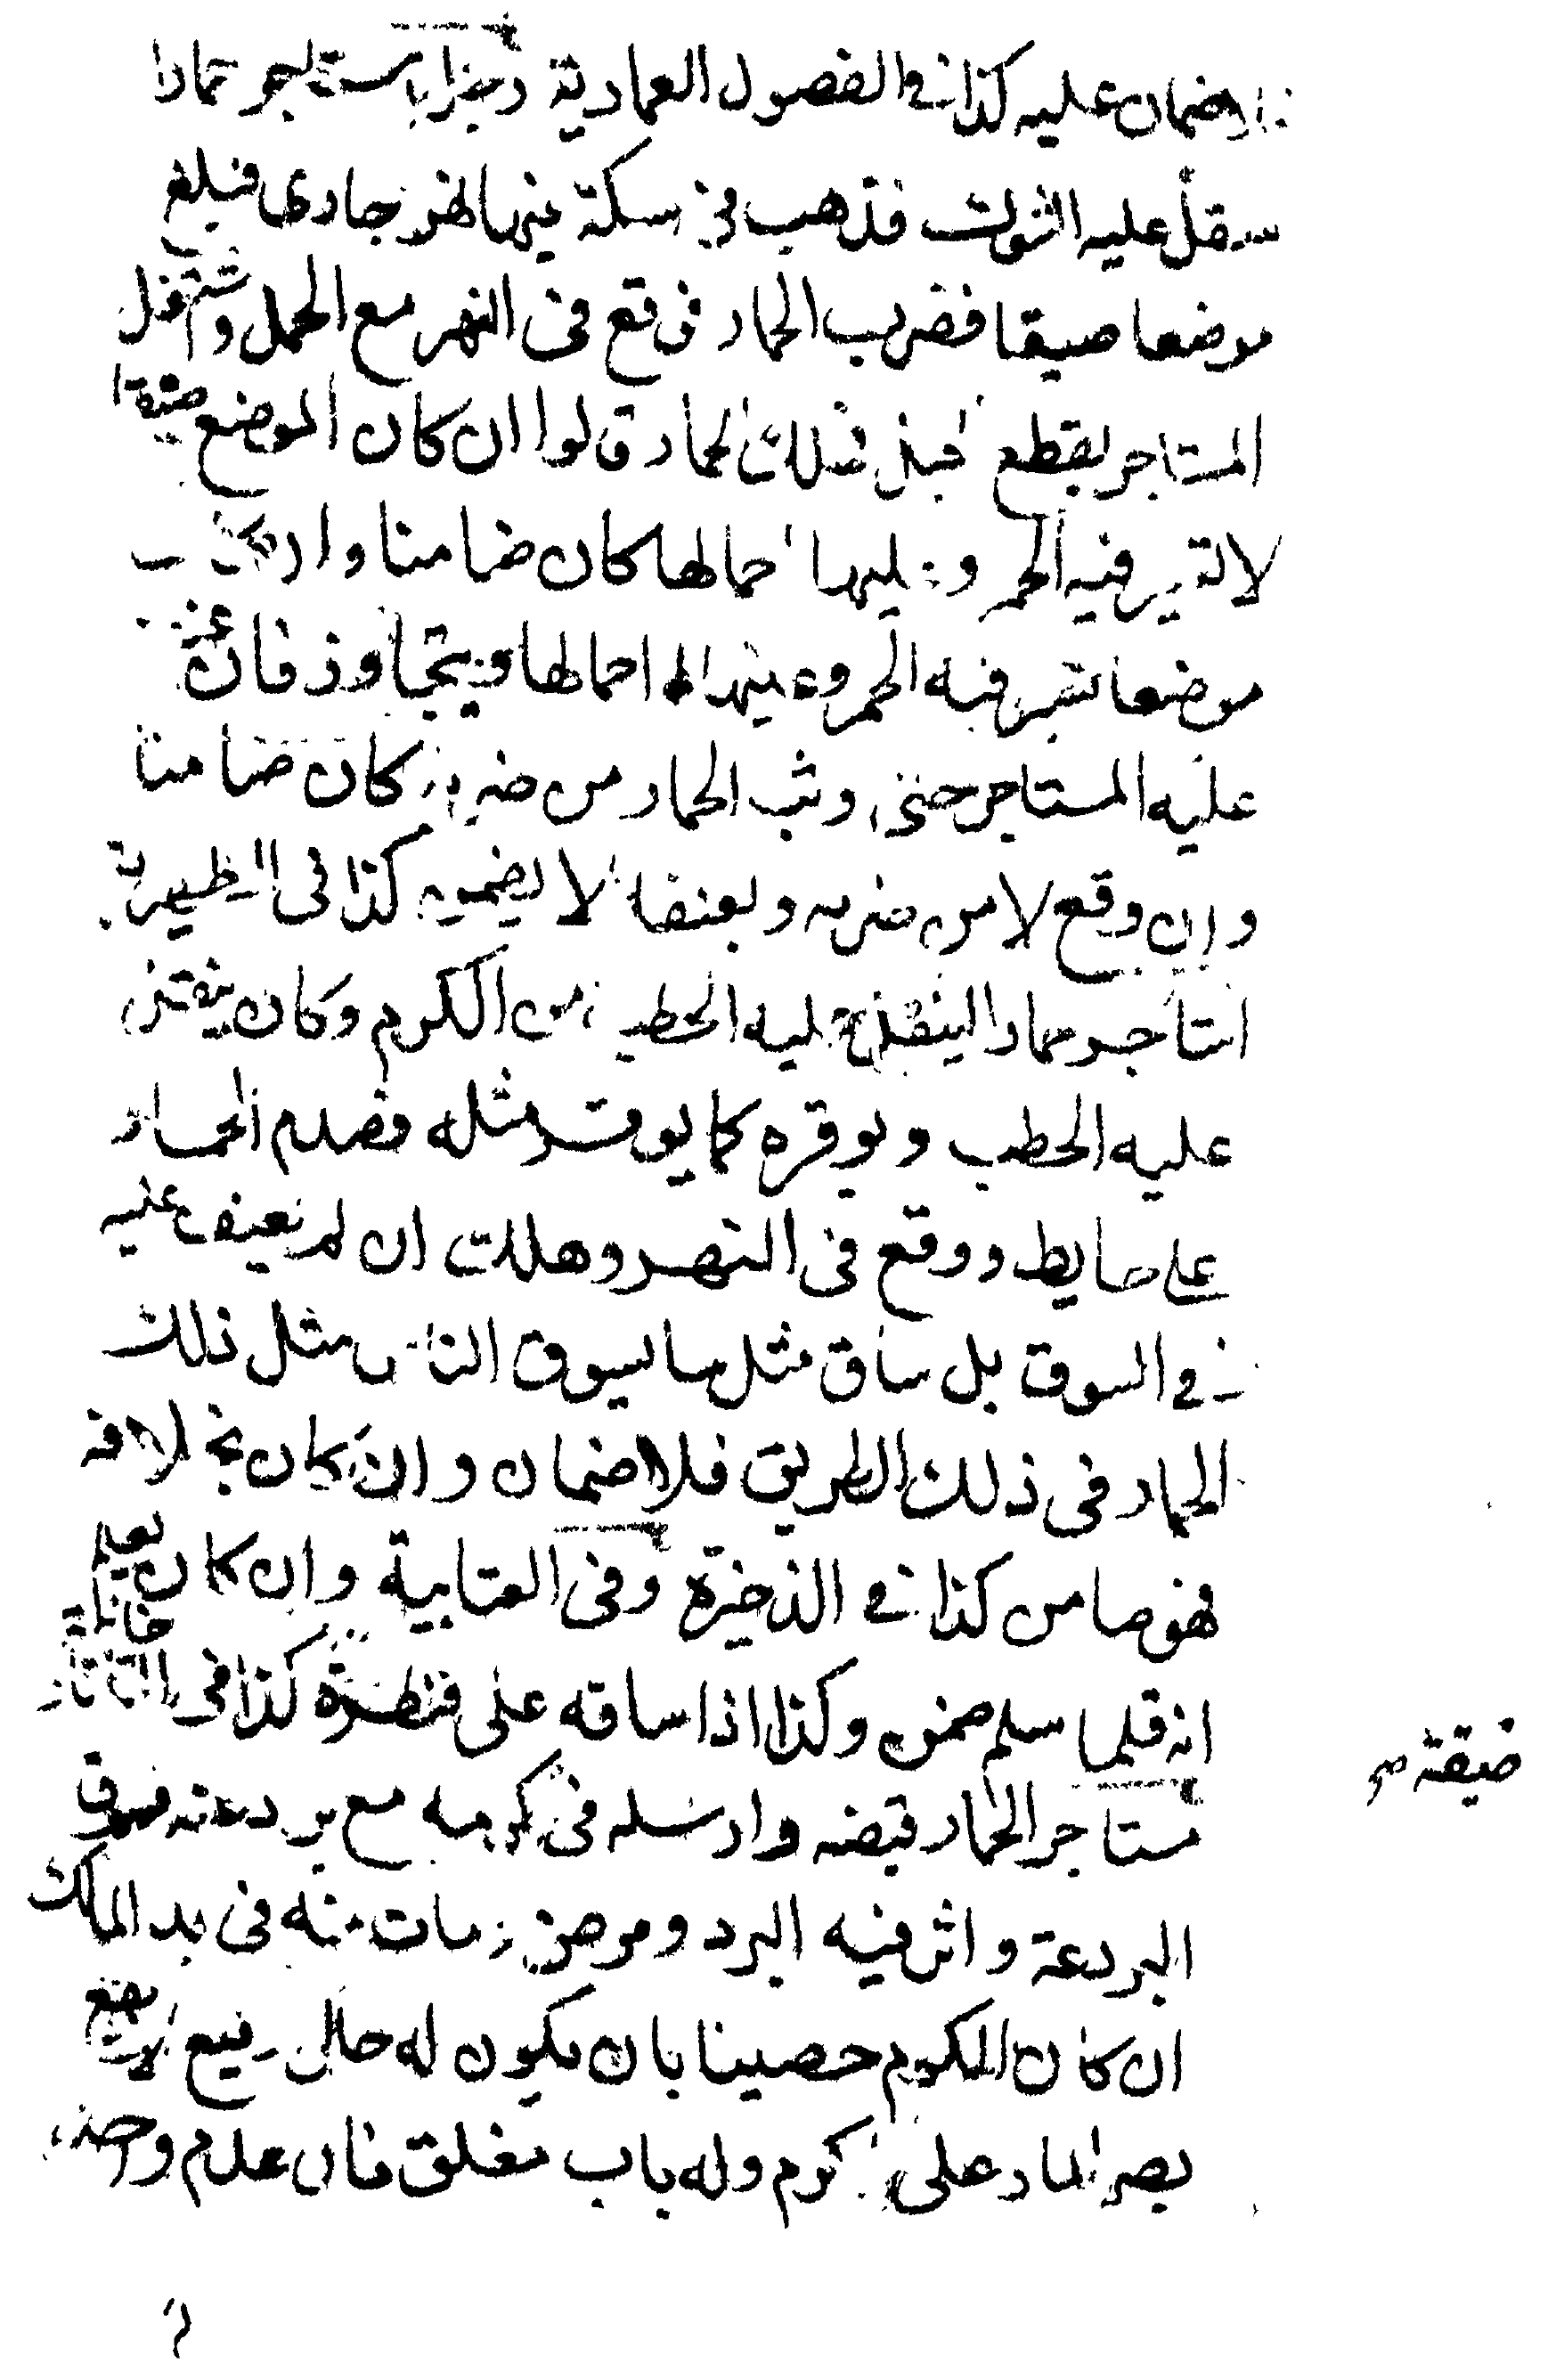 لاضمان عليه كذا في الفصول العمادية رجل استاجر حمارا
ينقل عليه الشوك فذهب في سكة فيها نهر جارى فبلغ
موضعا ضيقا فضرب الحمار فوقع في النهر مع الحمل واشتغل
المستاجر بقطع الحبل فهلك الحمار قالوا ان كان الموضع ضيقا
لا تسير فيه الحمر وعليها احمالها كان ضامنا وان كان
موضعا تسير فيه الحمر وعليها احمالها ويتجاوز فان عنف
عليه المستاجر حتى وثب الحمار من ضربه كان ضامنا
وان وقع لا من ضربه وبعنفه لا يضمن كذا في الظهيرية
استاجر حمارا لينقل عليه الحطب من الكرم وكان ينقل
عليه الحطب ويوقره كما يوقر مثله فصدم الحمار
على حايط ووقع في النهر وهلك ان لم يعنف عليه
في السوق بل ساق مثل ما يسوق الناس مثل ذلك
الحمار في ذلك الطريق فلا ضمان وان كان بخلافه
فهو ضامن كذا في الذخيرة وفي العتابية وان كان يعلم
انه قلما سلم ضمن وكذا اذا ساقه على قنطرة كذا في التاتارخانية
ضيقة صح
مستاجر الحمار قبضه وارسله في كرمه مع بردعته فسرق
البردعة واثر فيه البرد ومرض ومات منه في يد المالك
ان كان الكرم حصينا بان يكون له حائل رفيع لا يقع
بصر المار على الكرم وله باب مغلق فان عدم واحد